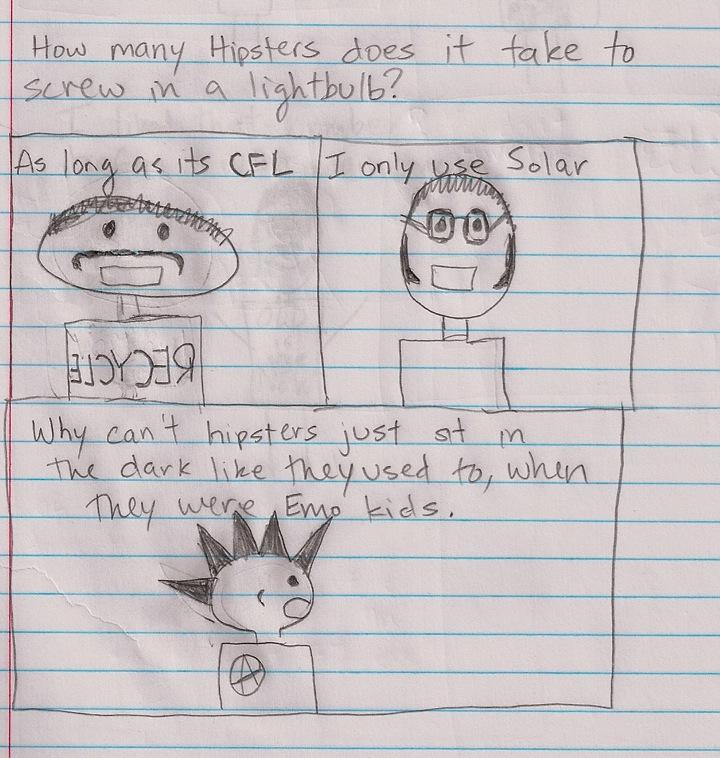 How many Hipsters does it take to
screw in a lightbulb?
As long as its CFL
I only use Solar
RECYCLE
Why can't hipsters just sit in
the dark like they used to, when
they were Emo kids.
A